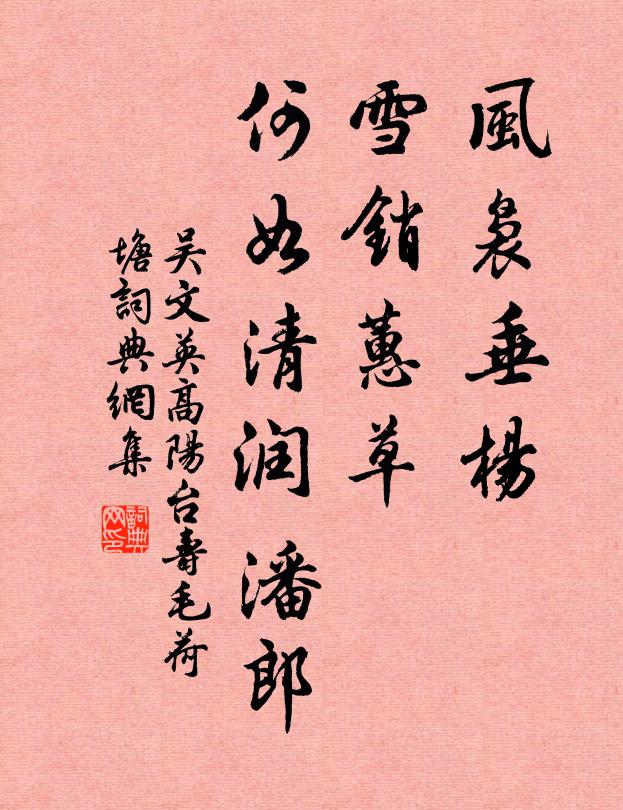 風裊垂楊
雪銷蕙草
何如清润潘郎
吴文英高陽台壽毛荷
塘詞典網集
詞典網印